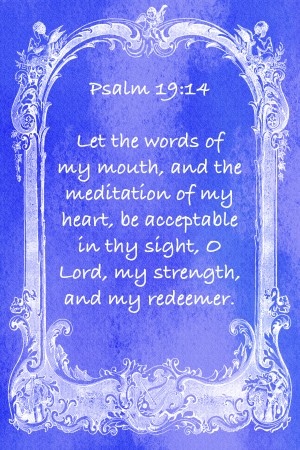 Psalm 19:14
Let the words of
my mouth, and the
meditation of my
heart, be acceptable
in thy sight, O
Lord, my strength,
and my redeemer.